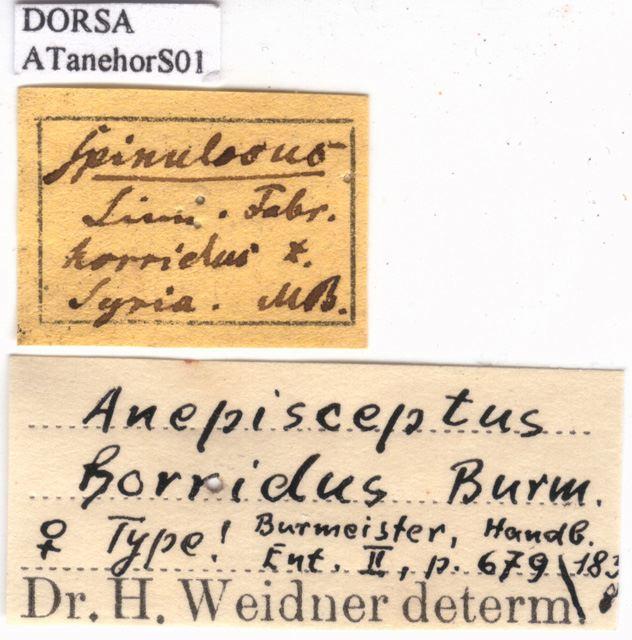 DORSA
ATanehorS01
Spinulosus
Linn. Fabr.
horridus
Syria. MB.
Anepisceptus
horridus Burm.
♀ Type! Burmeister, Handb.
Ent. II, p. 679 \ 183
Dr. H. Weidner determ.